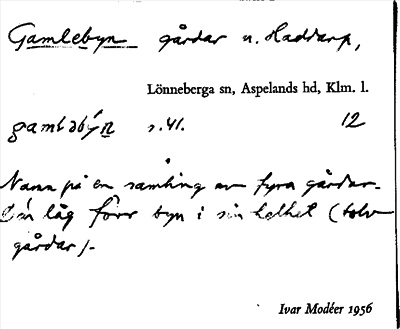 Gamlebyn gårdar u. Haddarp,
Lönneberga sn, Aspelands hd, Klm. l.
gambəbýn s. 41. 12
Namn på en samling av fyra gårdar.
Där låg förr byn i sin helhet (tolv
gårdar).
Ivar Modéer 1956